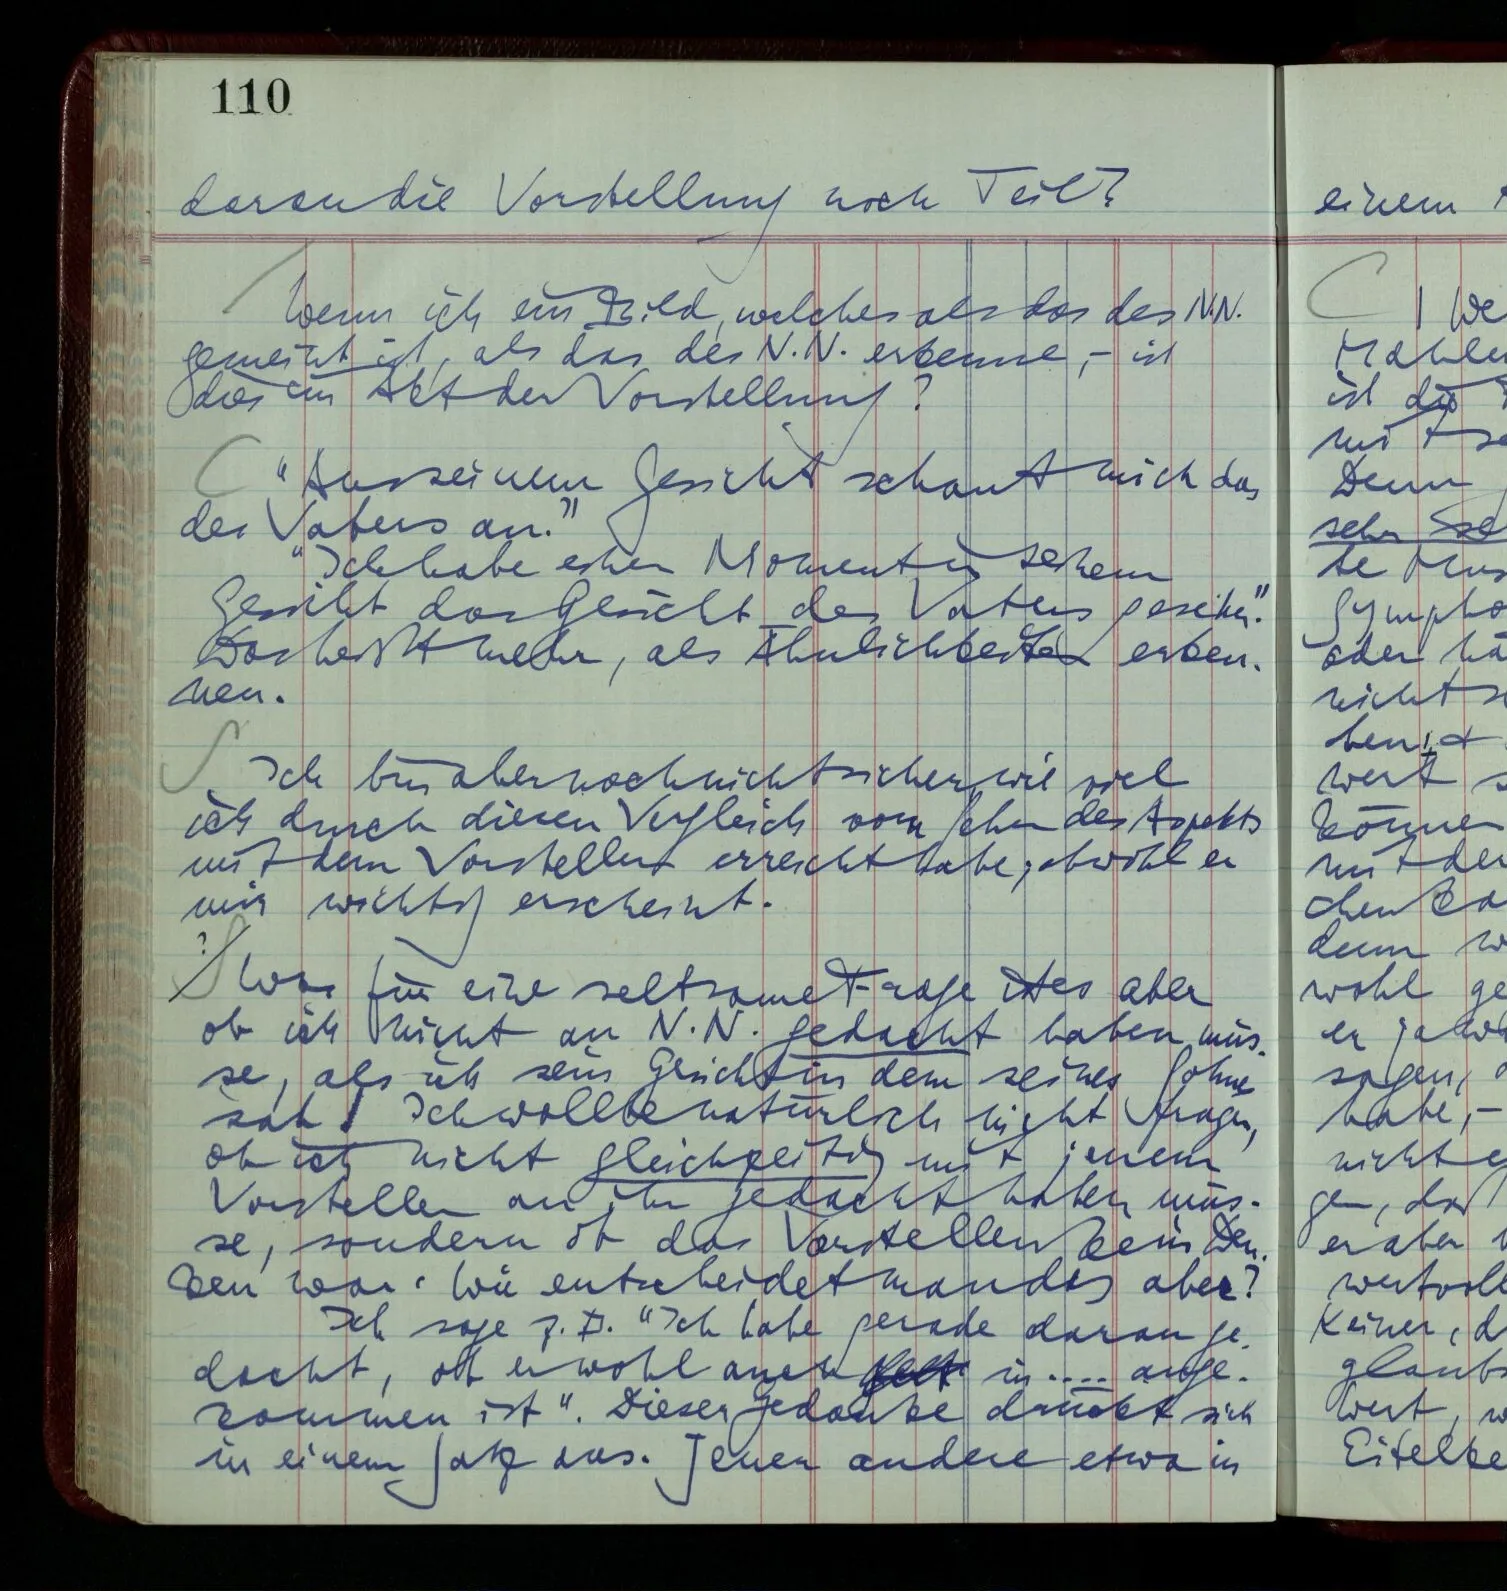 110
daran die Vorstellung noch Teil?
Wenn ich ein Bild, welches als das des N.N.
gemeint ist, als das des N.N. erkenne, – ist
dies ein Akt der Vorstellung?
"Aus seinem Gesicht schaut mich das
des Vaters an."
"Ich habe einen Moment in seinem
Gesicht das Gesicht des Vaters gesehen."
Das heißt mehr, als Ähnlichkeiten erken-
nen.
Ich bin aber noch nicht sicher, wie viel
ich durch diesen Vergleich vom Sehen des Aspekts
mit dem Vorstellen erreicht habe, obwohl er
mir wichtig erscheint.
? Was für eine seltsame Frage ist es aber
ob ich nicht an N.N. gedacht haben müs-
se, als ich sein Gesicht in dem seines Sohnes
sah! Ich wollte natürlich nicht fragen,
ob ich nicht gleichzeitig mit jenem
Vorstellen an ihn gedacht haben müs-
se, sondern ob das Vorstellen kein Den-
ken war. Wie entscheidet man das aber?
Ich sage z.B. "Ich habe gerade daran ge-
dacht, ob er wohl auch in .... ange-
kommen ist". Dieser Gedanke drückt sich
in einem Satz aus. Jener andere etwa in
einem
C
Mahler
ist die
mit
Denn
sehr
te Mus
Sympho
oder hä
nicht
ben,
wert
können
mit der
denn
wohl ge
er
sagen,
habe, –
nicht
gen, daß
er aber
wertvoll
Keiner, d
glaubt
Wert, w
Eitelke